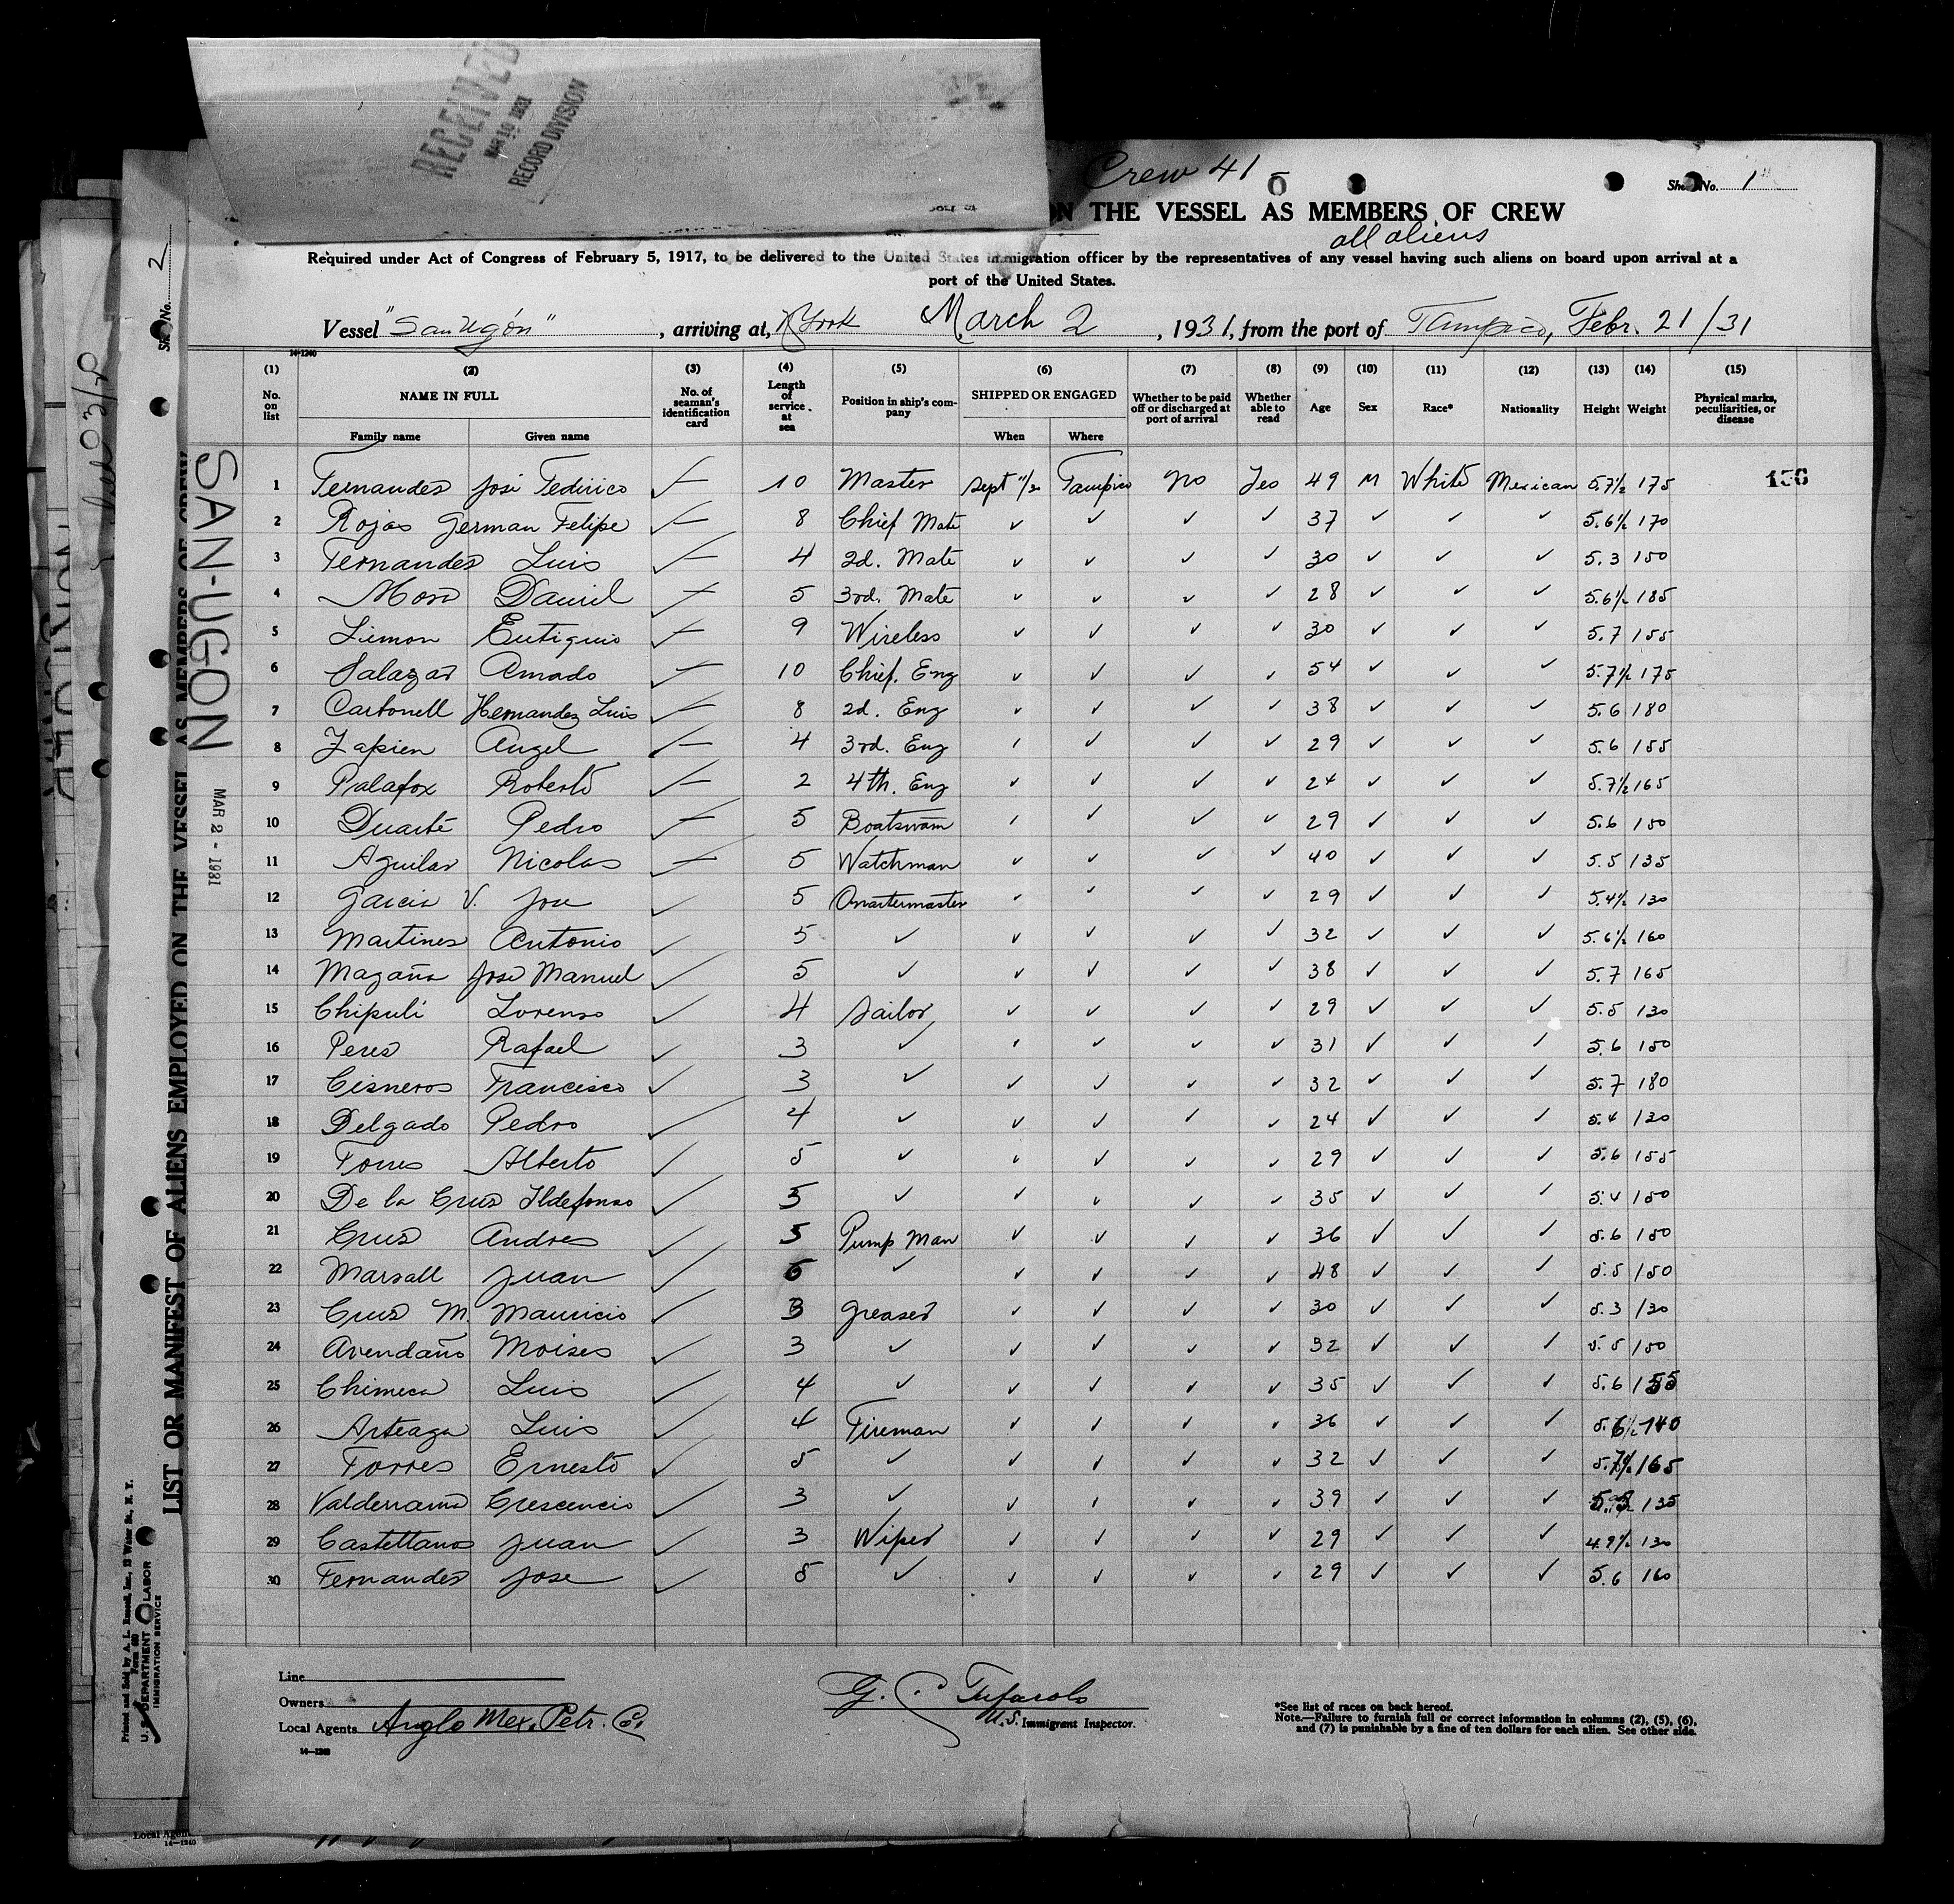 RECEIVED
MAR 10 1931
RECORD DIVISION
Crew 41
Sheet No. 1
ON THE VESSEL AS MEMBERS OF CREW
all aliens
Required under Act of Congress of February 5, 1917, to be delivered to the United States immigration officer by the representatives of any vessel having such aliens on board upon arrival at a
port of the United States.
Vessel "San Ugón", arriving at, N York March 2, 1931, from the port of Tampico, Febr. 21/31
14-1240
(1) (2) (3) (4) (5) (6) (7) (8) (9) (10) (11) (12) (13) (14) (15)
No. on list NAME IN FULL No. of seaman's identification card Length of service at sea Position in ship's company SHIPPED OR ENGAGED Whether to be paid off or discharged at port of arrival Whether able to read Age Sex Race* Nationality Height Weight Physical marks, peculiarities, or disease
Family name Given name When Where
1 Fernandes José Fedirico ✓ 10 Master Sept Tampico No Yes 49 M White Mexican 5.7½ 175 156
2 Rojas German Felipe ✓ 8 Chief Mate ✓ ✓ ✓ ✓ 37 ✓ ✓ ✓ 5.6½ 170
3 Fernandes Luis ✓ 4 2d. Mate ✓ ✓ ✓ ✓ 30 ✓ ✓ ✓ 5.3 150
4 Daniel ✓ 5 3rd. Mate ✓ ✓ ✓ ✓ 28 ✓ ✓ ✓ 5.6½ 185
5 Limon Eutiquio ✓ 9 Wireless ✓ ✓ ✓ ✓ 30 ✓ ✓ ✓ 5.7 155
6 Salazar Amado ✓ 10 Chief. Eng ✓ ✓ ✓ ✓ 54 ✓ ✓ ✓ 5.7½ 175
7 Carbonell Hernandez Luis ✓ 8 2d. Eng ✓ ✓ ✓ ✓ 38 ✓ ✓ ✓ 5.6 180
8 Zapien Angel ✓ 4 3rd. Eng ✓ ✓ ✓ ✓ 29 ✓ ✓ ✓ 5.6 155
9 Palafox Roberto ✓ 2 4th. Eng ✓ ✓ ✓ ✓ 24 ✓ ✓ ✓ 5.7½ 165
10 Duarte Pedro ✓ 5 Boatswain ✓ ✓ ✓ ✓ 29 ✓ ✓ ✓ 5.6 150
11 Aguilar Nicolas ✓ 5 Watchman ✓ ✓ ✓ ✓ 40 ✓ ✓ ✓ 5.5 135
12 Garcia V. Jose ✓ 5 Quartermaster ✓ ✓ ✓ ✓ 29 ✓ ✓ ✓ 5.4½ 130
13 Martines Antonio ✓ 5 ✓ ✓ ✓ ✓ ✓ 32 ✓ ✓ ✓ 5.6½ 160
14 Magaña Jose Manuel ✓ 5 ✓ ✓ ✓ ✓ ✓ 38 ✓ ✓ ✓ 5.7 165
15 Chipuli Lorenso ✓ 4 Sailor ✓ ✓ ✓ ✓ 29 ✓ ✓ ✓ 5.5 130
16 Peres Rafael ✓ 3 ✓ ✓ ✓ ✓ ✓ 31 ✓ ✓ ✓ 5.6 150
17 Cisneros Francisco ✓ 3 ✓ ✓ ✓ ✓ ✓ 32 ✓ ✓ ✓ 5.7 180
18 Delgado Pedro ✓ 4 ✓ ✓ ✓ ✓ ✓ 24 ✓ ✓ ✓ 5.4 130
19 Torres Alberto ✓ 5 ✓ ✓ ✓ ✓ ✓ 29 ✓ ✓ ✓ 5.6 155
20 De la Crus Ildefonso ✓ 5 ✓ ✓ ✓ ✓ ✓ 35 ✓ ✓ ✓ 5.4 150
21 Crus Andres ✓ 5 Pump Man ✓ ✓ ✓ ✓ 36 ✓ ✓ ✓ 5.6 150
22 Marsall Juan ✓ 6 ✓ ✓ ✓ ✓ ✓ 48 ✓ ✓ ✓ 5.5 150
23 Crus M. Mauricio ✓ 3 Greaser ✓ ✓ ✓ ✓ 30 ✓ ✓ ✓ 5.3 130
24 Avendaño Moises ✓ 3 ✓ ✓ ✓ ✓ ✓ 32 ✓ ✓ ✓ 5.5 150
25 Chimeca Luis ✓ 4 ✓ ✓ ✓ ✓ ✓ 35 ✓ ✓ ✓ 5.6 155
26 Arteaga Luis ✓ 4 Fireman ✓ ✓ ✓ ✓ 36 ✓ ✓ ✓ 5.6½ 140
27 Torres Ernesto ✓ 5 ✓ ✓ ✓ ✓ ✓ 32 ✓ ✓ ✓ 5.7½ 165
28 Valderrama Crescencio ✓ 3 ✓ ✓ ✓ ✓ ✓ 39 ✓ ✓ ✓ 135
29 Castettanos Juan ✓ 3 Wiper ✓ ✓ ✓ ✓ 29 ✓ ✓ ✓ 4.9½ 130
30 Fernandes Jose ✓ 5 ✓ ✓ ✓ ✓ ✓ 29 ✓ ✓ ✓ 5.6 160
Line
Owners
Local Agents Anglo Mex. Petr. Co.
14-1240
G. C. Tufarolo
U.S. Immigrant Inspector.
*See list of races on back hereof.
Note.—Failure to furnish full or correct information in columns (2), (5), (6),
and (7) is punishable by a fine of ten dollars for each alien. See other side.
SAN-UGON
MAR 2 - 1931
LIST OR MANIFEST OF ALIENS EMPLOYED ON THE VESSEL AS MEMBERS OF CREW
Sheet No. 2
Printed and Sold by A. L. Russell, Inc., 12 Water St., N. Y.
Form 680
U. S. DEPARTMENT OF LABOR
IMMIGRATION SERVICE
Local Agents
14-1240